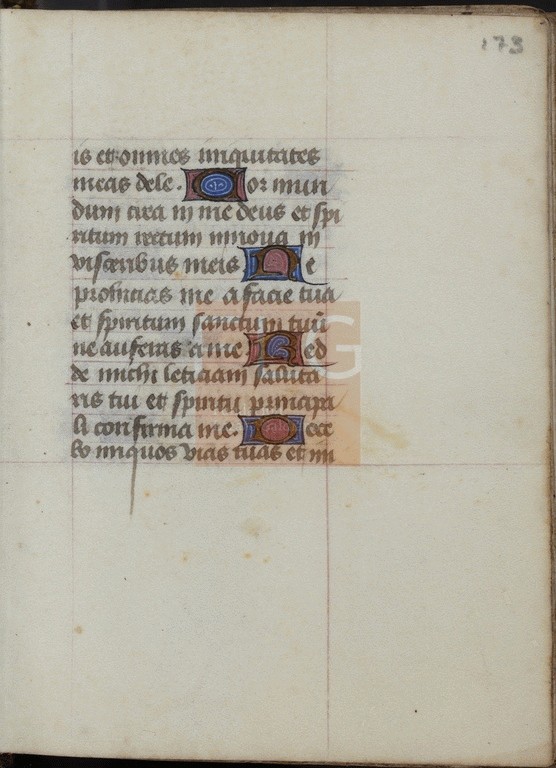 173
is et omnes iniquitates
meas dele. Cor mun
dum crea in me deus et spi
ritum rectum innova in
visceribus meis Ne
proincias me a facie tua
et spiritum sanctum tuū
ne auferas a me. Red
de michi leticiam saluta
ris tui et spiritu principa
li confirma me. Doce
bo iniquos vias tuas et im
G